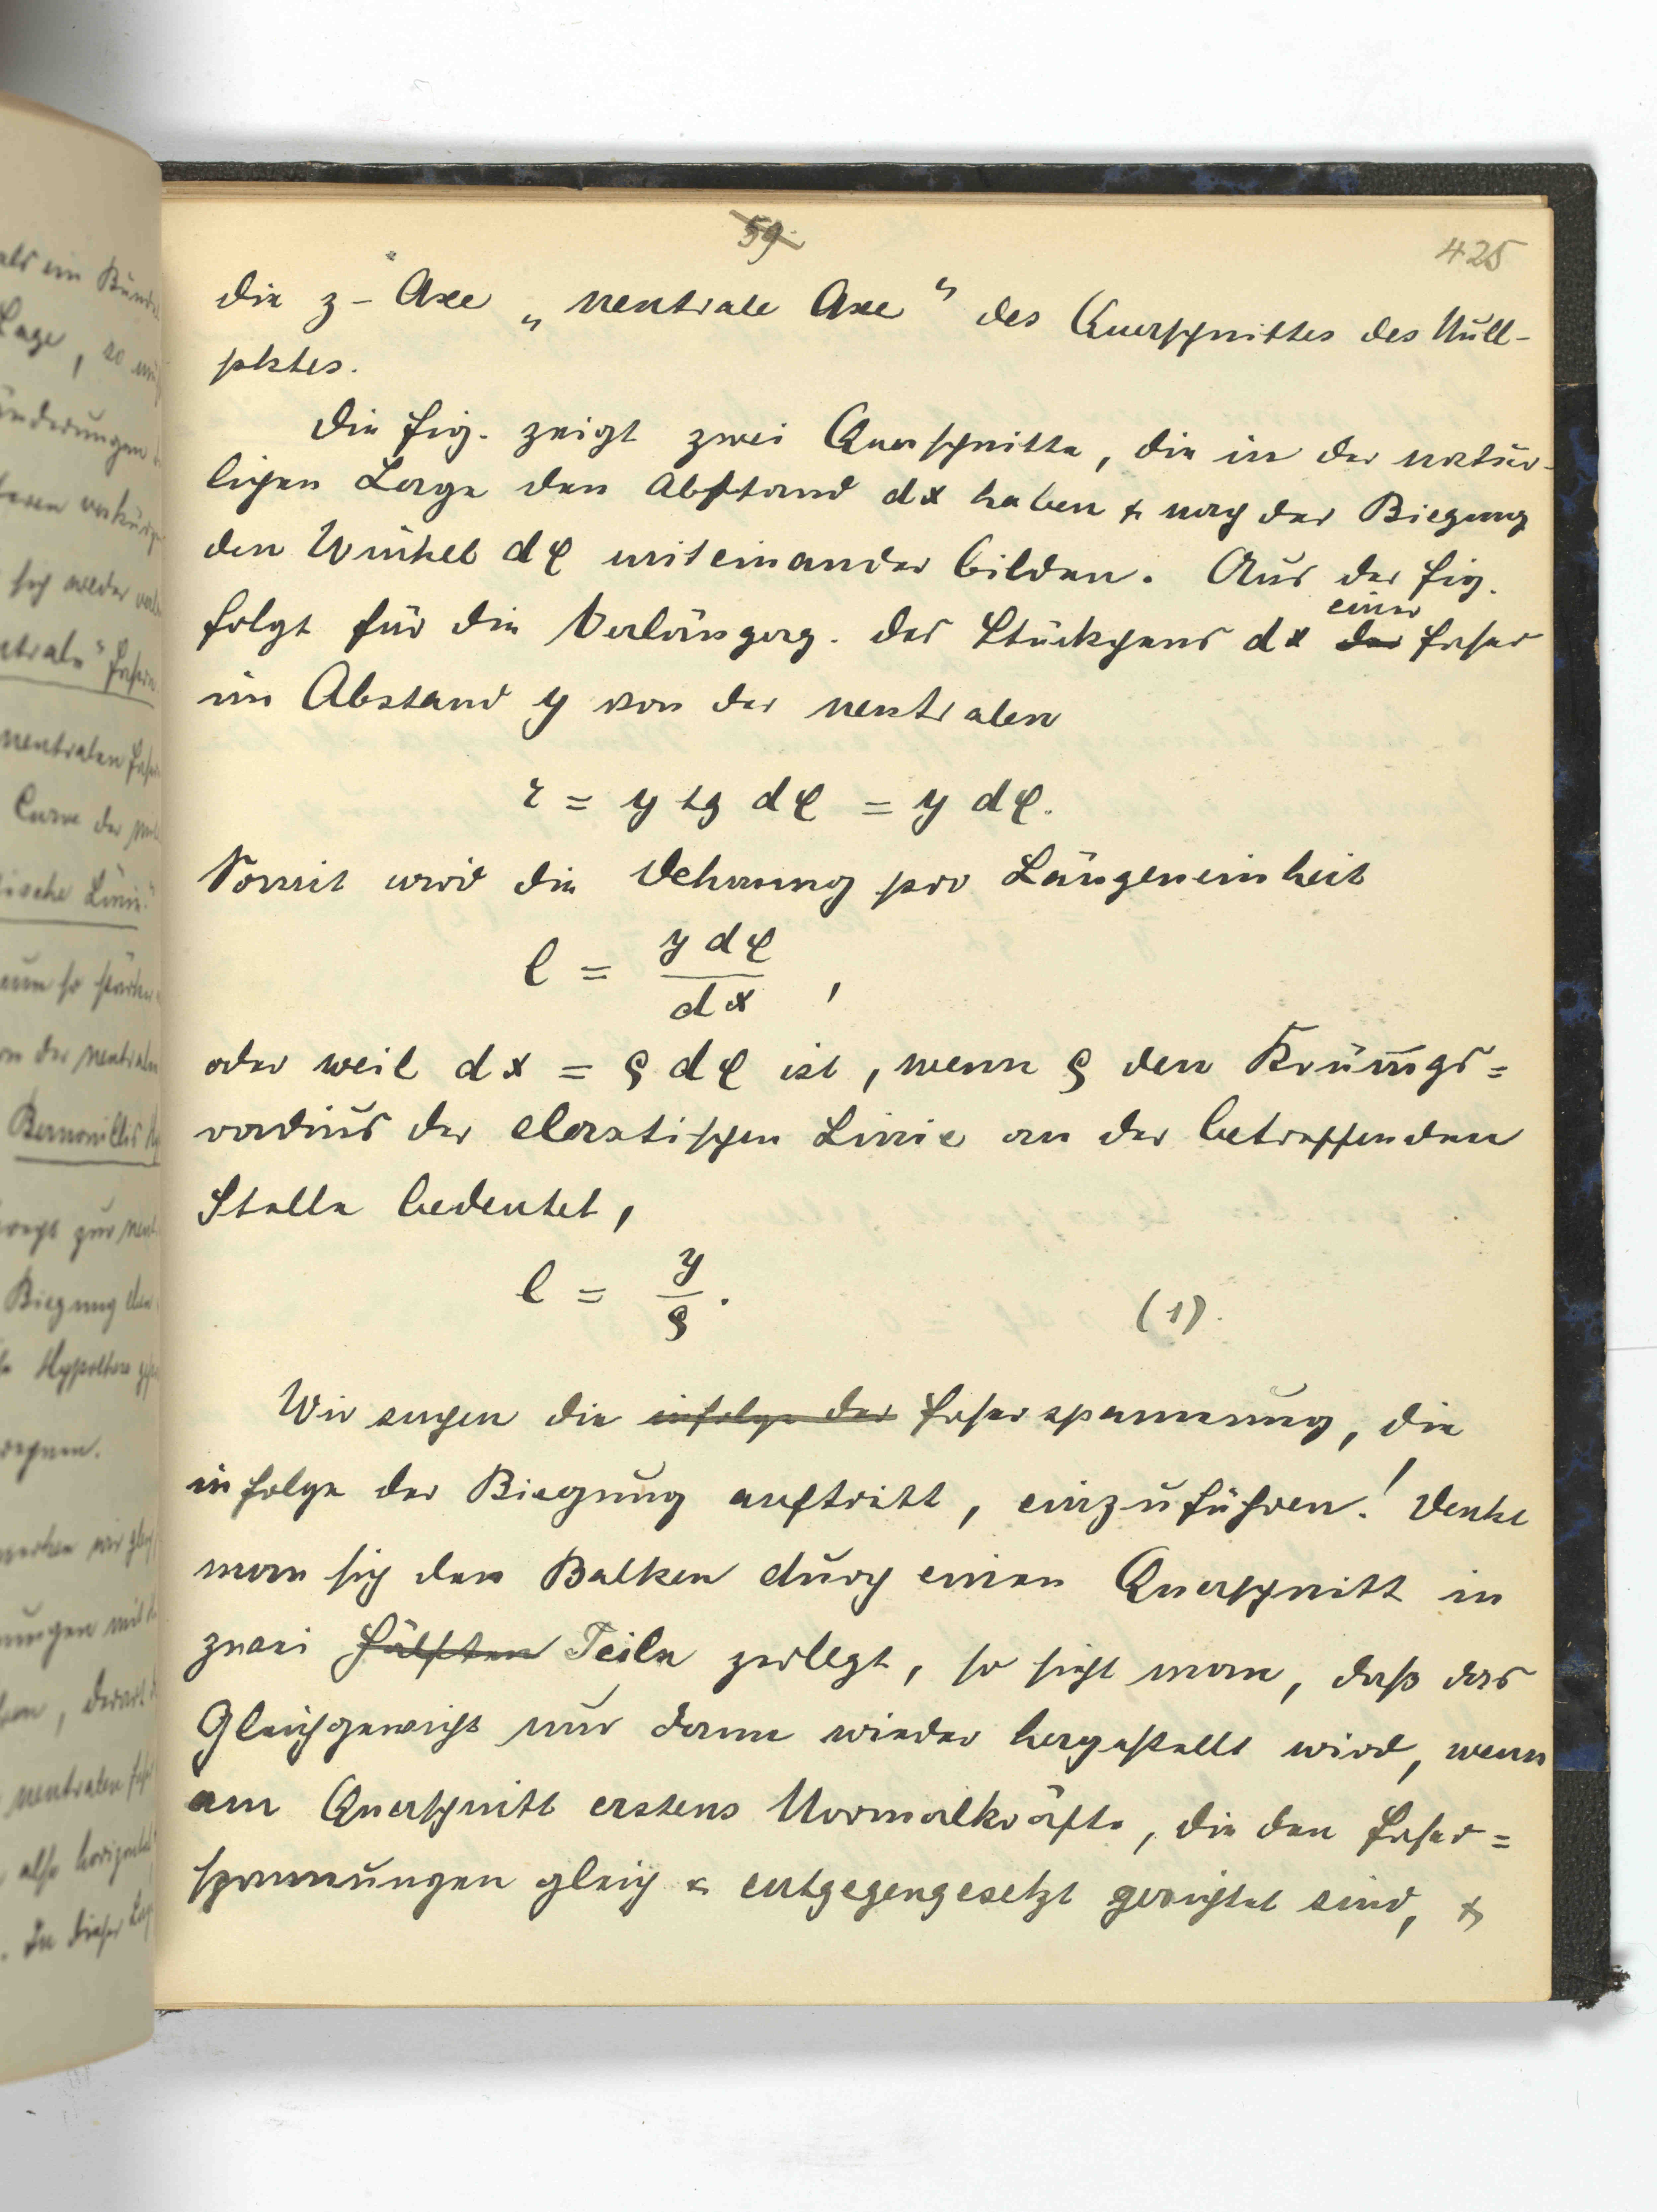 59.
425
die z - Axe „neutrale Axe" des Querschnittes des Null-
pktes.
Die Fig. zeigt zwei Querschnitte, die in der natür-
lichen Lage den Abstand dx haben & nach der Biegung
den Winkel dφ miteinander bilden. Aus der Fig.
einer
folgt für die Verlängerg. des Stückchens dx der Faser
im Abstand y von der neutralen
= y tg dφ = y dφ.
Somit wird die Dehnung pro Längeneinheit
l = y dφ / dx ,
oder weil dx = ρ dφ ist, wenn ρ den Krüm̅gs=
radius der elastischen Linie an der betreffenden
Stelle bedeutet,
l = y / ρ . (1).
Wir suchen die infolge der Faserspannung, die
infolge der Biegung auftritt, einzuführen! Denkt
man sich den Balken durch einen Querschnitt in
zwei Hälften Teile zerlegt, so sieht man, daß das
Gleichgewicht nur dann wieder hergestellt wird, wenn
am Querschnitt erstens Normalkräfte, die den Faser=
spannungen gleich & entgegengesetzt gerichtet sind, &
als ein
Lage, so
änderungen
sich weder
neutralen
Curve der
Bernoullis
Biegung
neutralen
also horizontal
. In dieser